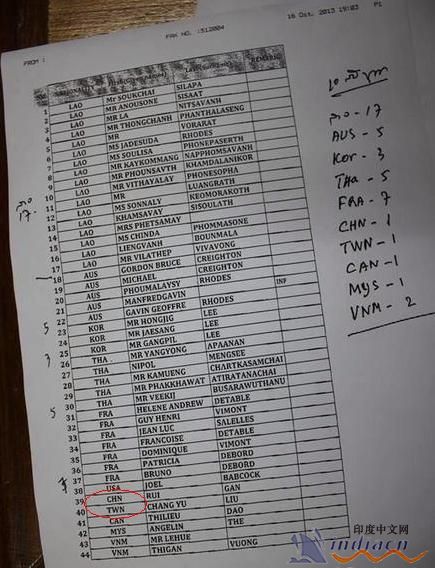 FROM :
FAX NO. :512004
16 Oct. 2013 19:03 P1
NATIONALITY
1 LAO Mr SOUKCHAI SILAPA
2 LAO Mr ANOUSONE SISAAT
3 LAO Mr LA NITSAVANH
4 LAO Mr THONGCHANH PHANTHALASENG
5 LAO MR VORARAT
6 LAO MS JADESUDA RHODES
7 LAO MS SOULISA PHONEPASERTH
8 LAO MR KAYKOMMANG NAPPHOMSAVANH
9 LAO MR PHOUNSAVTH KHAMDALANIKOR
10 LAO MR VITHAYALAY
11 LAO MR LUANGRATH
12 LAO MS SONNALY KEOMESOPHA
13 LAO KHAMSAVAY SISOULATH
14 LAO MRS PHETSAMAY
15 LAO MS CHINDA PHOMMASONE
16 LAO LIENGVANH BOUNMALA
17 LAO MR VILATHEP VIVAVONG
18 AUS GORDON BRUCE CREIGHTON
19 AUS MICHAEL CREIGHTON
20 AUS PHOUMALAYSY RHODES
21 AUS MANFREDGAVIN INF
22 AUS GAVIN GEOFFRE RHODES
23 KOR MR HONGJIG LEE
24 KOR MR JAESANG LEE
25 KOR MR GANGPIL LEE
26 THA MR YANGYONG APAANAN
27 THA NIPOL MENGSEE
28 THA MR KAMUENG CHARTKASAMCHAI
29 THA MR PHAKKHAWAT ATIRATANACHAI
30 THA MR VEEKIJ BUSARAWUTHANU
31 FRA HELENE ANDREW DETABLE
32 FRA GUY HENRI VIMONT
33 FRA JEAN LUC SALELLES
34 FRA FRANCOISE DETABLE
35 FRA DOMINIQUE VIMONT
36 FRA PATRICIA DEBORD
37 FRA BRUNO DEBORD
38 USA JOEL BABCOCK
39 CHN RUI GAN
40 TWN CHANG YU LIU
41 CAN THILIEU DAO
42 MYS ANGELIN THE
43 VNM MR LEHUE
44 VNM THIGAN VUONG
17.
5
3
5
ລາວ - 17
AUS - 5
Kor - 3
THa - 5
FRA - 7
CHN - 1
TWN - 1
CAN - 1
MYS - 1
VNM - 2
印度中文网
indiacn